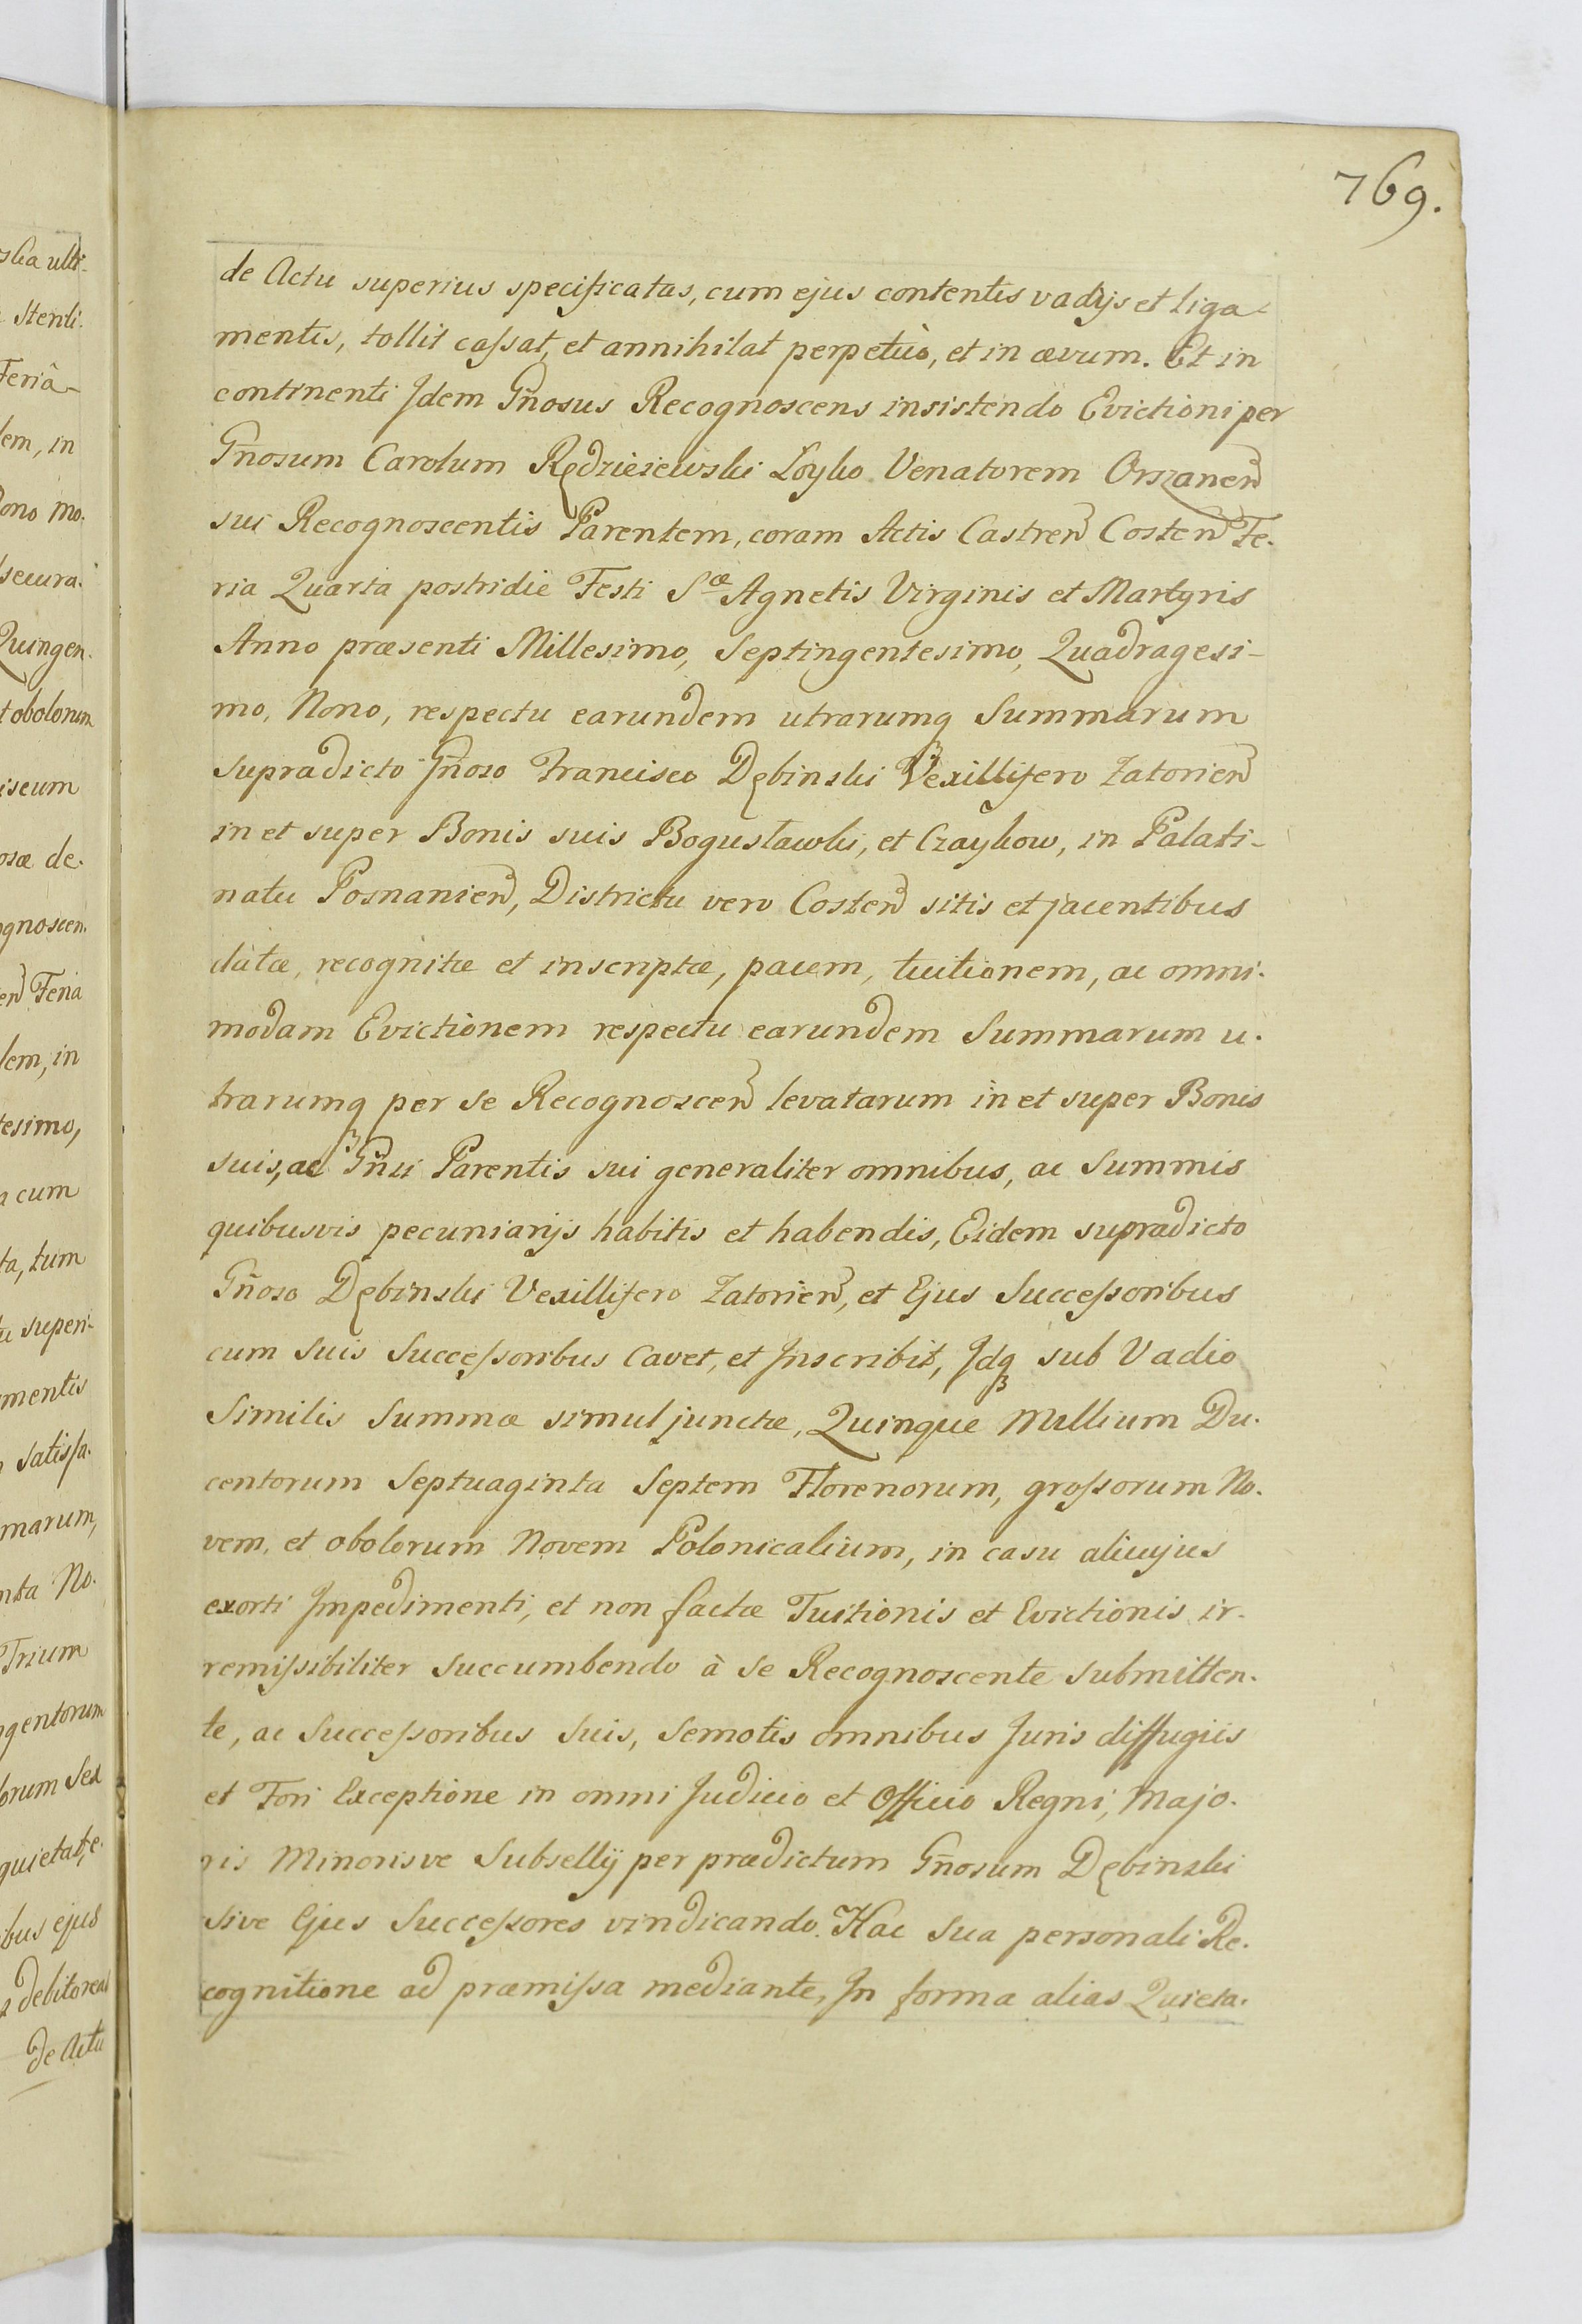 769.
de Actu superius specificatas, cum ejus contentis vadijs et liga-
mentis, tollit caſsat, et annihilat perpetuò, et in ævum. Et in
continenti Jdem Gñosus Recognoscens insistendo Evictioni per
Gñosum Carolum Rędzieiewski Łoyko Venatorem Orszaneñ
sui Recognoscentis Parentem, coram Actis Castreñ Costeñ Fe-
ria Quarta postridie Festi Sæ Agnetis Virginis et Martyris
Anno præsenti Millesimo, Septingentesimo, Quadragesi-
mo, Nono, respectu earundem utrarumq Summarum
supradicto Gñoso Francisco Dębinski Vexillifero Zatorieñ
in et super Bonis suis Bogusławki, et Czaykow, in Palati-
natu Posnanieñ, Districtu vero Costeñ sitis et jacentibus
datæ, recognitæ et inscriptæ, pacem, tuitionem, ac omni-
modam Evictionem respectu earundem Summarum u-
trarumq per se Recognosceñ levatarum in et super Bonis
suis, ac Gñsi Parentis sui generaliter omnibus, ac Summis
quibusvis pecuniarijs habitis et habendis, Eidem supradicto
Gñoso Dębinski Vexillifero Zatorieñ, et Ejus Succeſsoribus
cum suis Succeſsoribus Cavet, et Jnscribit, Jdq sub Vadio
Similis Summæ simul junctæ, Quinque Millium Du-
centorum Septuaginta Septem Florenorum, groſsorum No-
vem, et obolorum Novem Polonicalium, in casu alicujus
exorti Jmpedimenti, et non factæ Tuitionis et Evictionis ir-
remiſsibiliter succumbendo à se Recognoscente submitten-
te, ac Succeſsoribus Suis, Semotis omnibus Juris diffugiis
et Fori Exceptione in omni Judicio et Officio Regni, Majo-
ris Minorisve Subsellij per prædictum Gñosum Dębinski
sive Ejus Succeſsores vindicando. Hac Sua personali Re-
cognitione ad præmiſsa mediante, Jn forma alias Quieta-